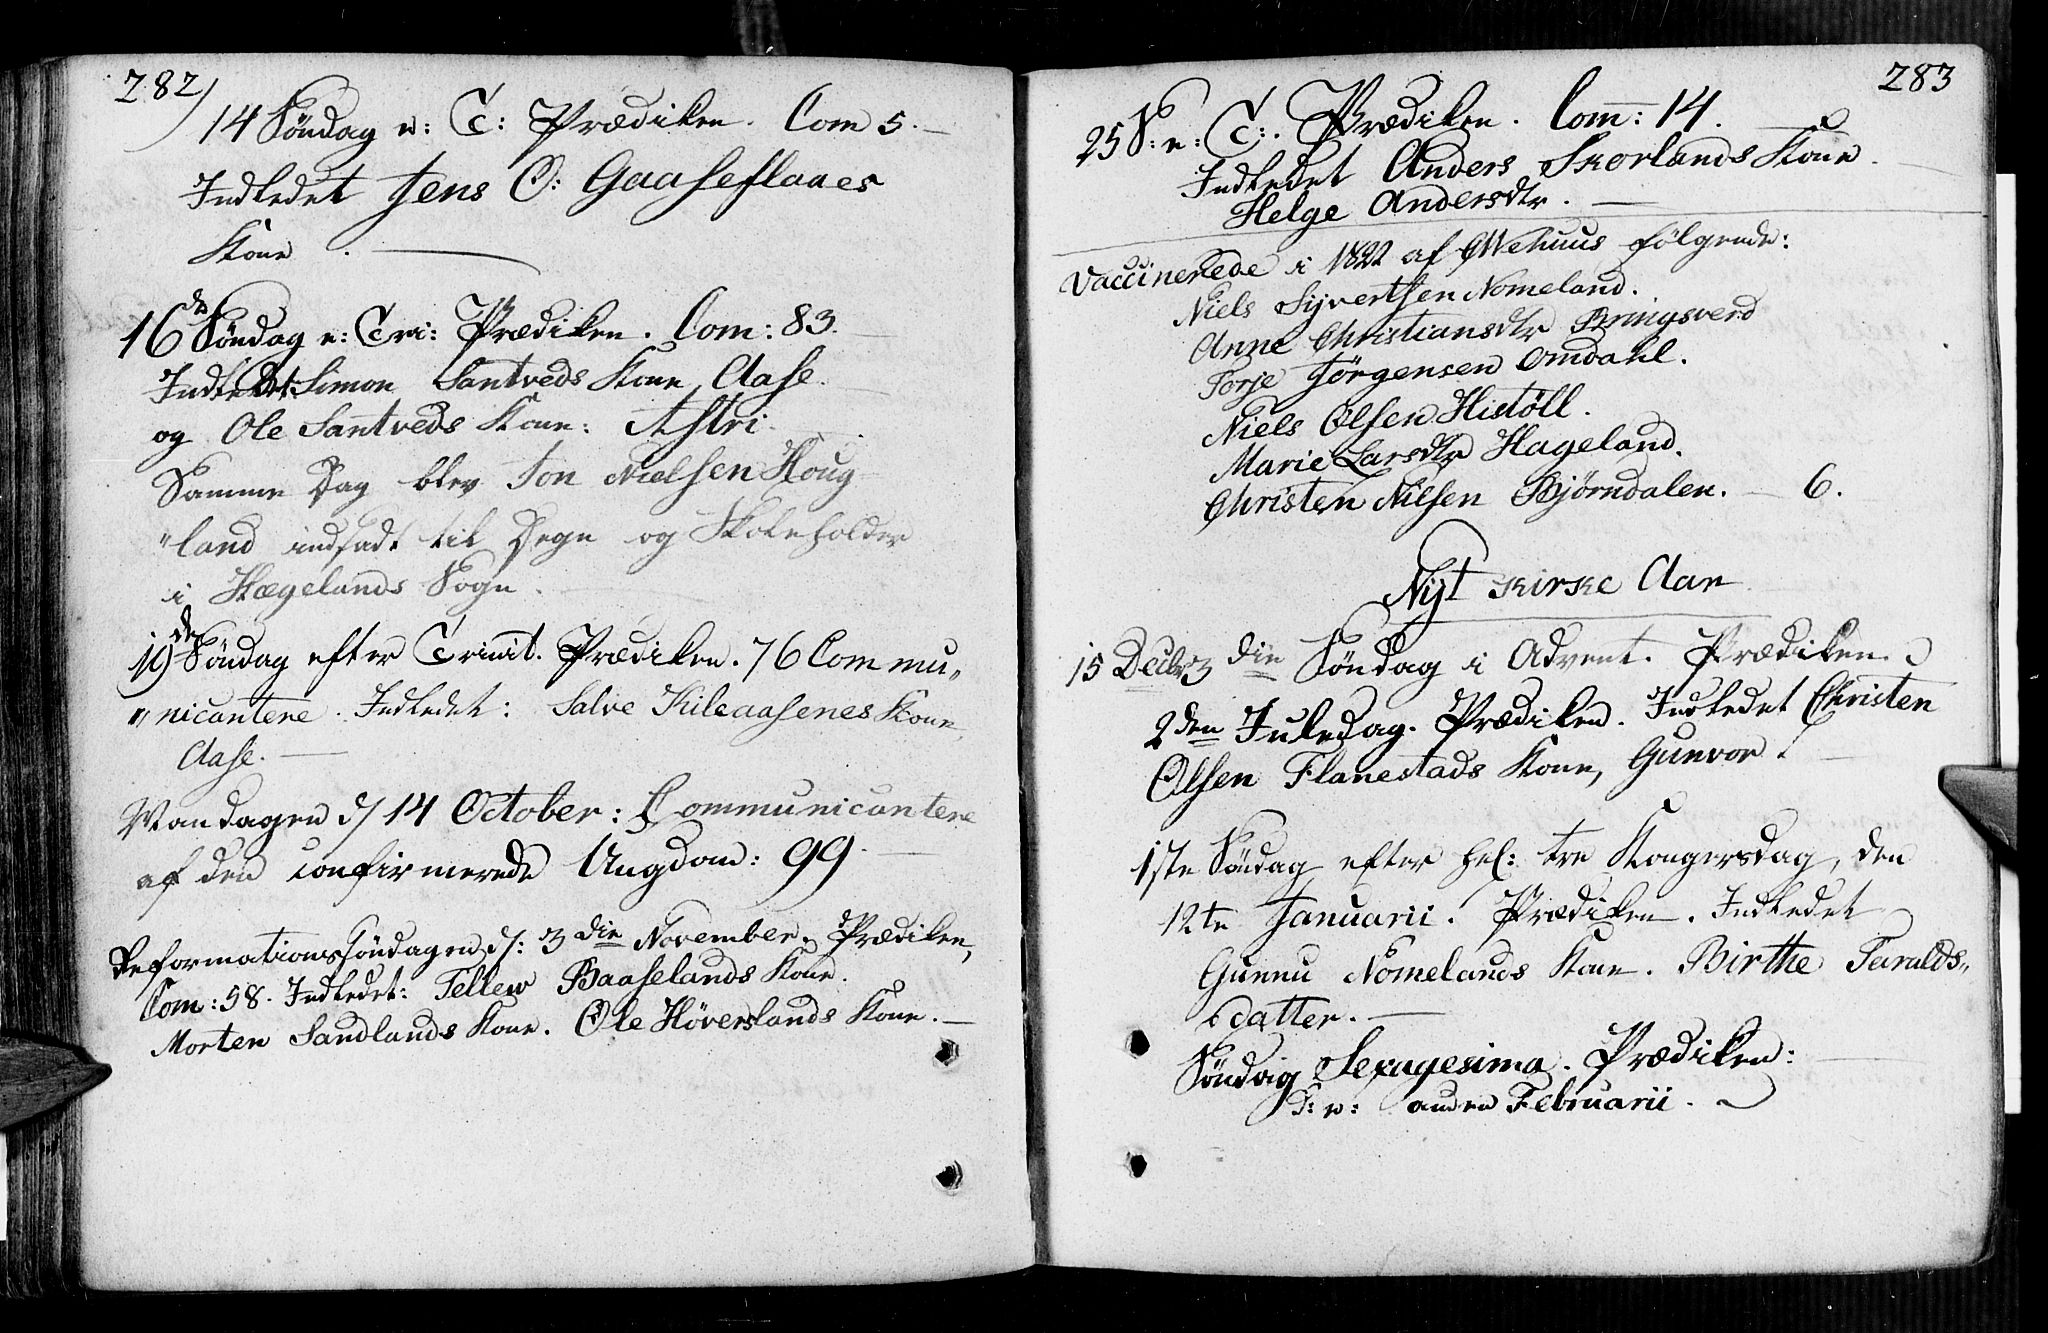 282)
14 Söndag e: T: Prædiken. Com 5.
Indledet Jens O: Gaaseflaaes
Kone.
16de Söndag e: Tri: Prædiken. Com: 83.
Indledet Simon Santveds Kone, Aase.
og Ole Santveds Kone: Astri.
Samme Dag blev Jon Nielsen Houg
"land indsadt til Degn og Skoleholder
i Hægelands Sogn.
19de Söndag efter Trinit. Prædiken. 76 Commu„
„nicantere. Indledet: Salve Kileaasenes Kone,
Aase.
Mandagen d/ 14 October: Communicantere
af den confirmerede Ungdom: 99.
Reformationssöndagen d/: 3die November. Prædiken,
Com: 58. Indledet: Tellew Baaselands Kone.
Morten Sandlands Kone. Ole Höverslands Kone.
283
25 S: e: T:. Prædiken. Com: 14.
Indledet Anders Skorlands Kone.
Helge Andersdtr.
Vaccinerede i 1822 af GWehuus følgende:
Niels Sijvertsen Nomeland.
Anne Christiansdtr Bringsverd
Torje Jörgensen Omdahl.
Niels Olsen Histöll.
Marie Larsdtr Hageland.
Christen Nilsen Bjørndalen. — 6.
Nijt Kirke Aar
15 Decbr 3die Söndag i Advent. Prædiken.
2den Juledag. Prædiken. Indledet Christen
Olsen Flanestads Kone, Gunvor.
1ste Söndag efter hel: tre Kongersdag, den
12te Januarii. Prædiken. Indledet
Gunnu Nomelands Kone. Birthe Taralds„
datter.
Söndag Sexagesima. Prædiken:
d: e: anden Februarii.